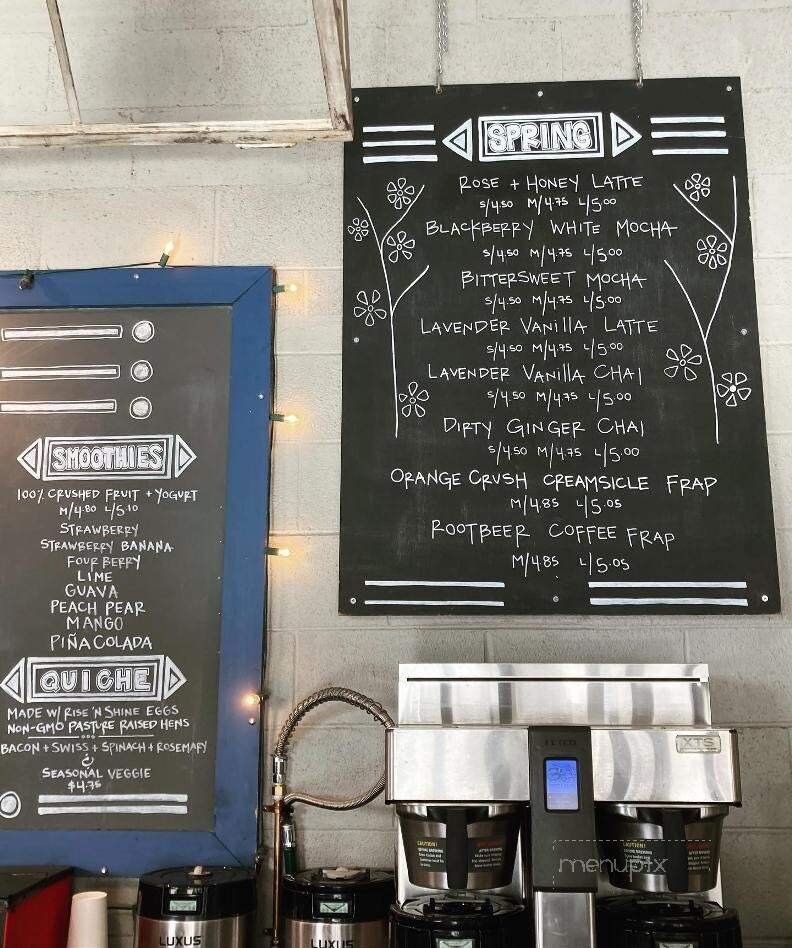 SPRING
ROSE + HONEY LATTE
S/4.50 M/4.75 L/5.00
BLACKBERRY WHITE MOCHA
S/4.50 M/4.75 L/5.00
BITTERSWEET MOCHA
S/4.50 M/4.75 L/5.00
LAVENDER VANIllA LATTE
S/4.50 M/4.75 L/5.00
LAVENDER VANIllA CHAI
S/4.50 M/4.75 L/5.00
DIRTY GINGER CHAI
S/4.50 M/4.75 L/5.00
ORANGE CRUSH CREAMSICLE FRAP
M/4.85 L/5.05
ROOTBEER COFFEE FRAP
M/4.85 L/5.05
SMOOTHIES
100% CRUSHED FRUIT + YOGURT
M/4.80 L/5.10
STRAWBERRY
STRAWBERRY BANANA
FOUR BERRY
LIME
GUAVA
PEACH PEAR
MANGO
PIÑA COLADA
QUICHE
MADE W/ RISE 'N SHINE EGGS
NON-GMO PASTURE RAISED HENS
BACON + SWISS + SPINACH + ROSEMARY
&
SEASONAL VEGGIE
$4.75
FETCO
XTS
CAUTION!
CAUTION!
LUXUS
LUXUS
menupix